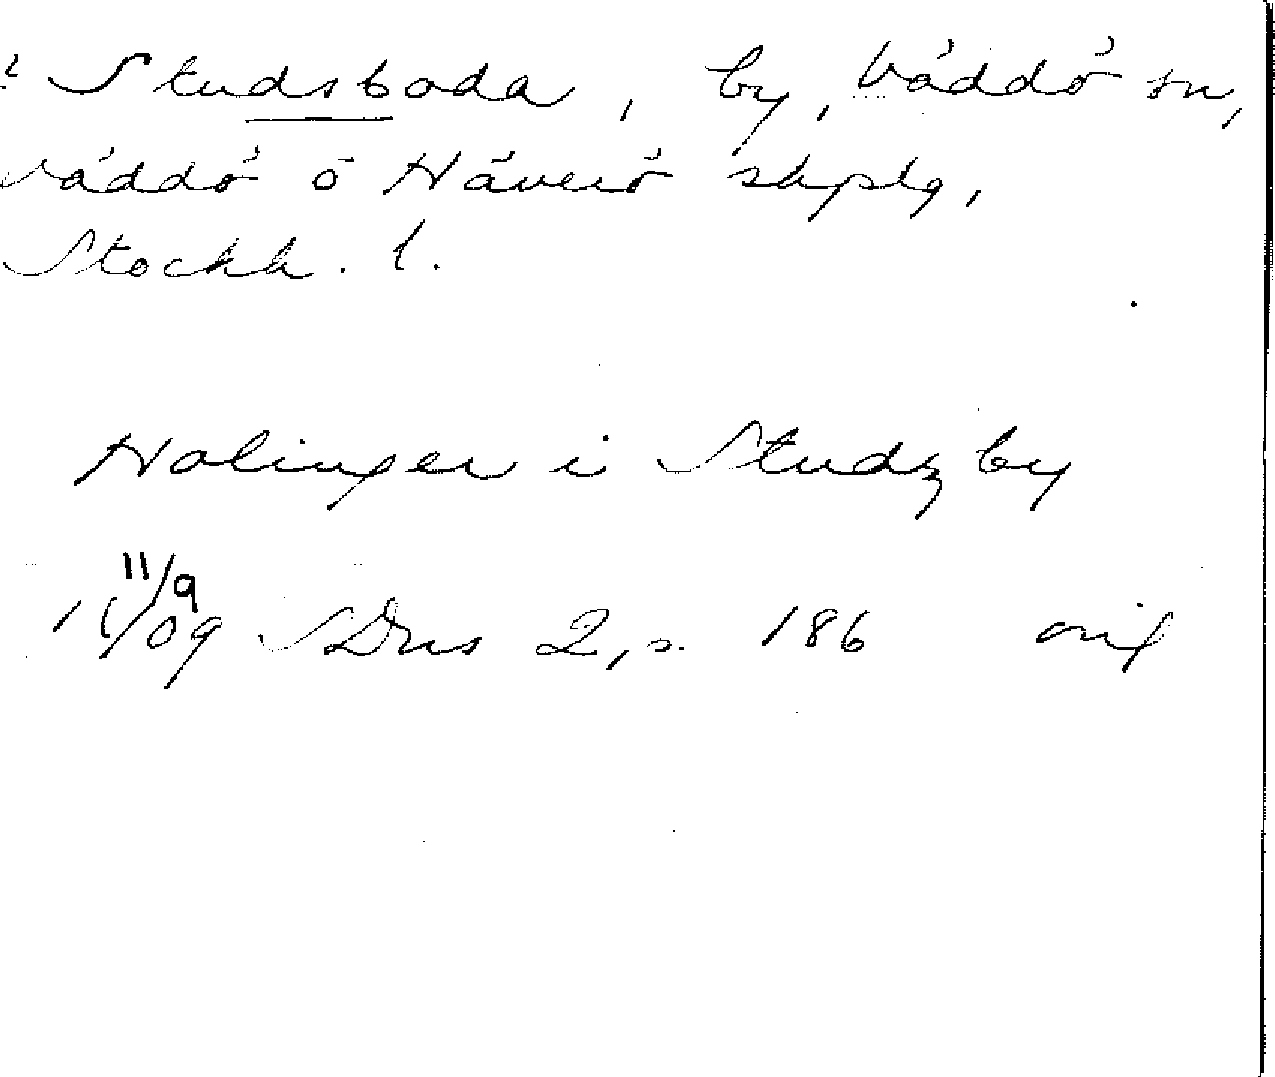 ? Studsboda, by, Väddö sn,
Väddö o Häverö skplg,
Stockh. l.
Holinger i Studzby
11/9
1409 SDns 2, s. 186 orig